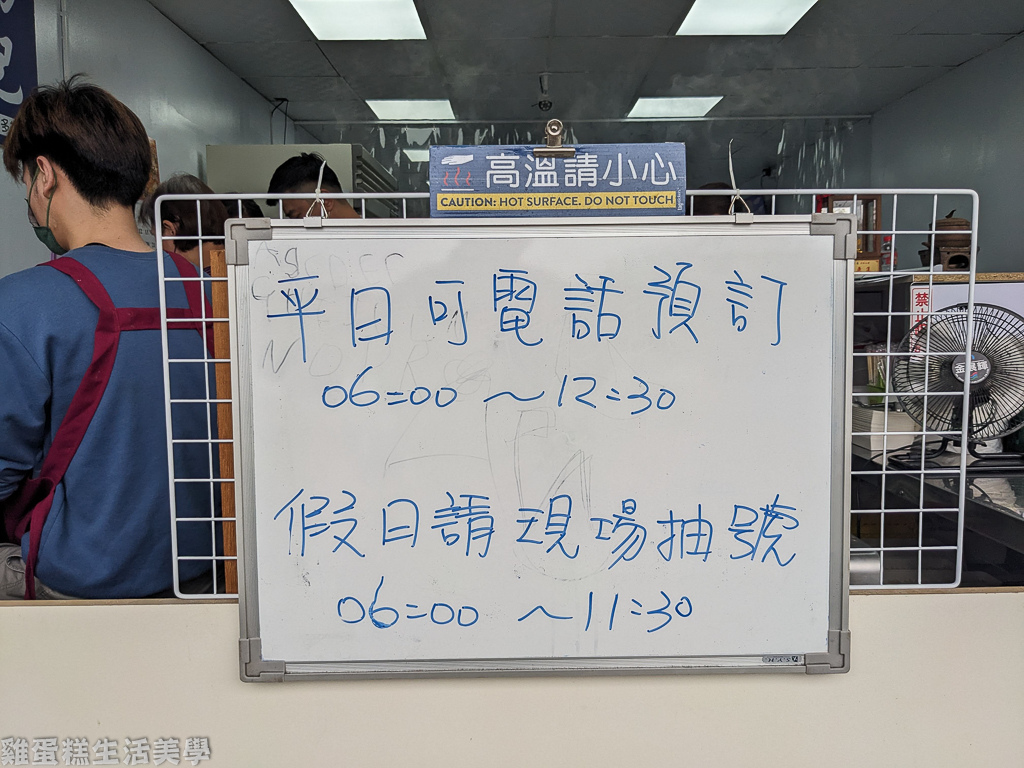 高溫請小心
CAUTION: HOT SURFACE. DO NOT TOUCH
平日可電話預訂
06:00 ~ 12:30
假日請現場抽號
06:00 ~ 11:30
禁
金展輝
雞蛋糕生活美學